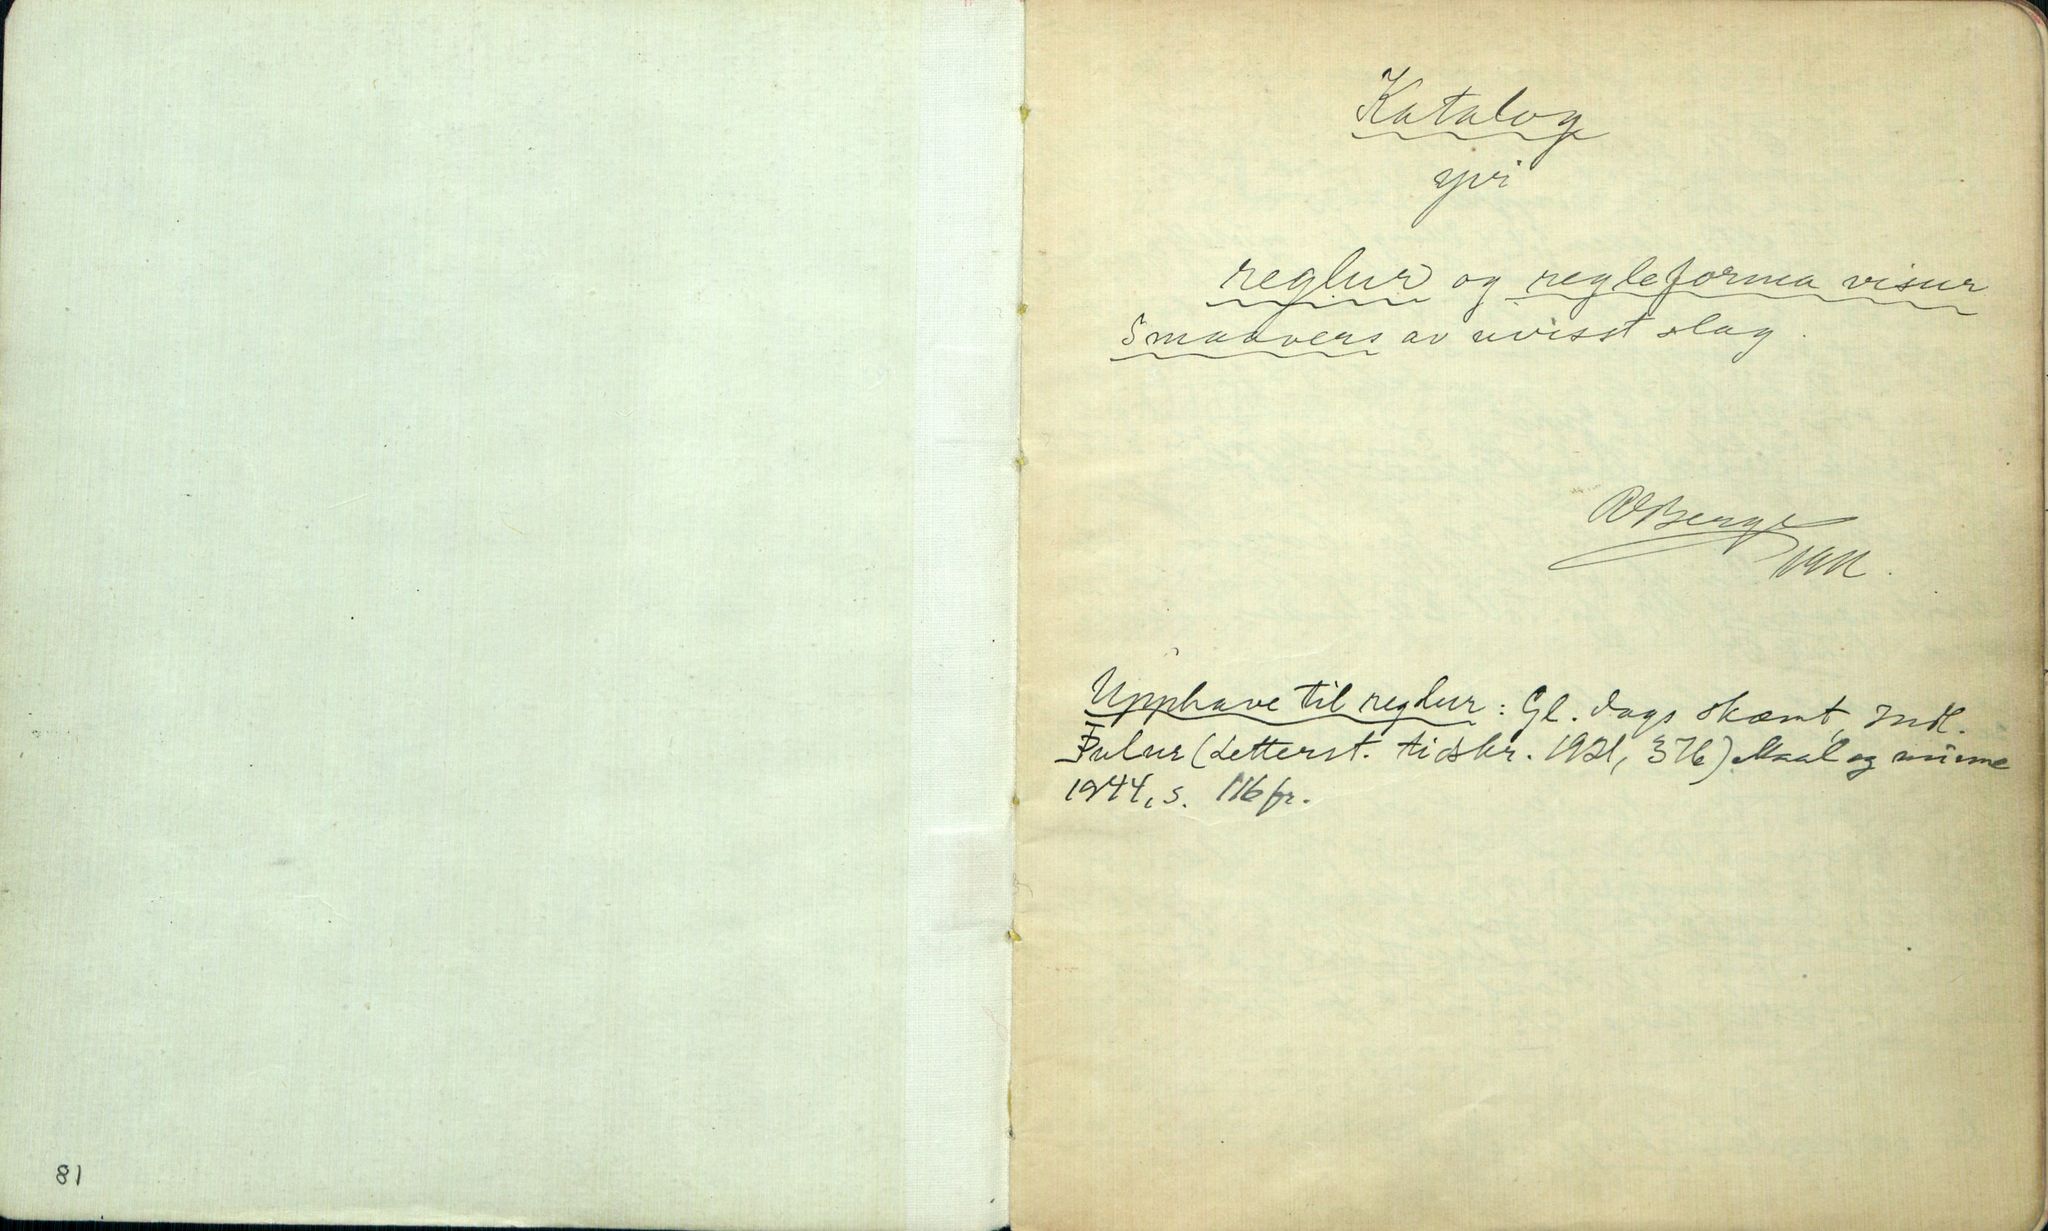 81
Katalog
yvi
reglur og regleforma visur
Smaavers av uvisst slag.
RBerge
Upphave til reglur: Gl. dags skæmt, Indl.
(Letterst. tidskr. 1921, 376) Maal og minne
1944, s. 116 fr.